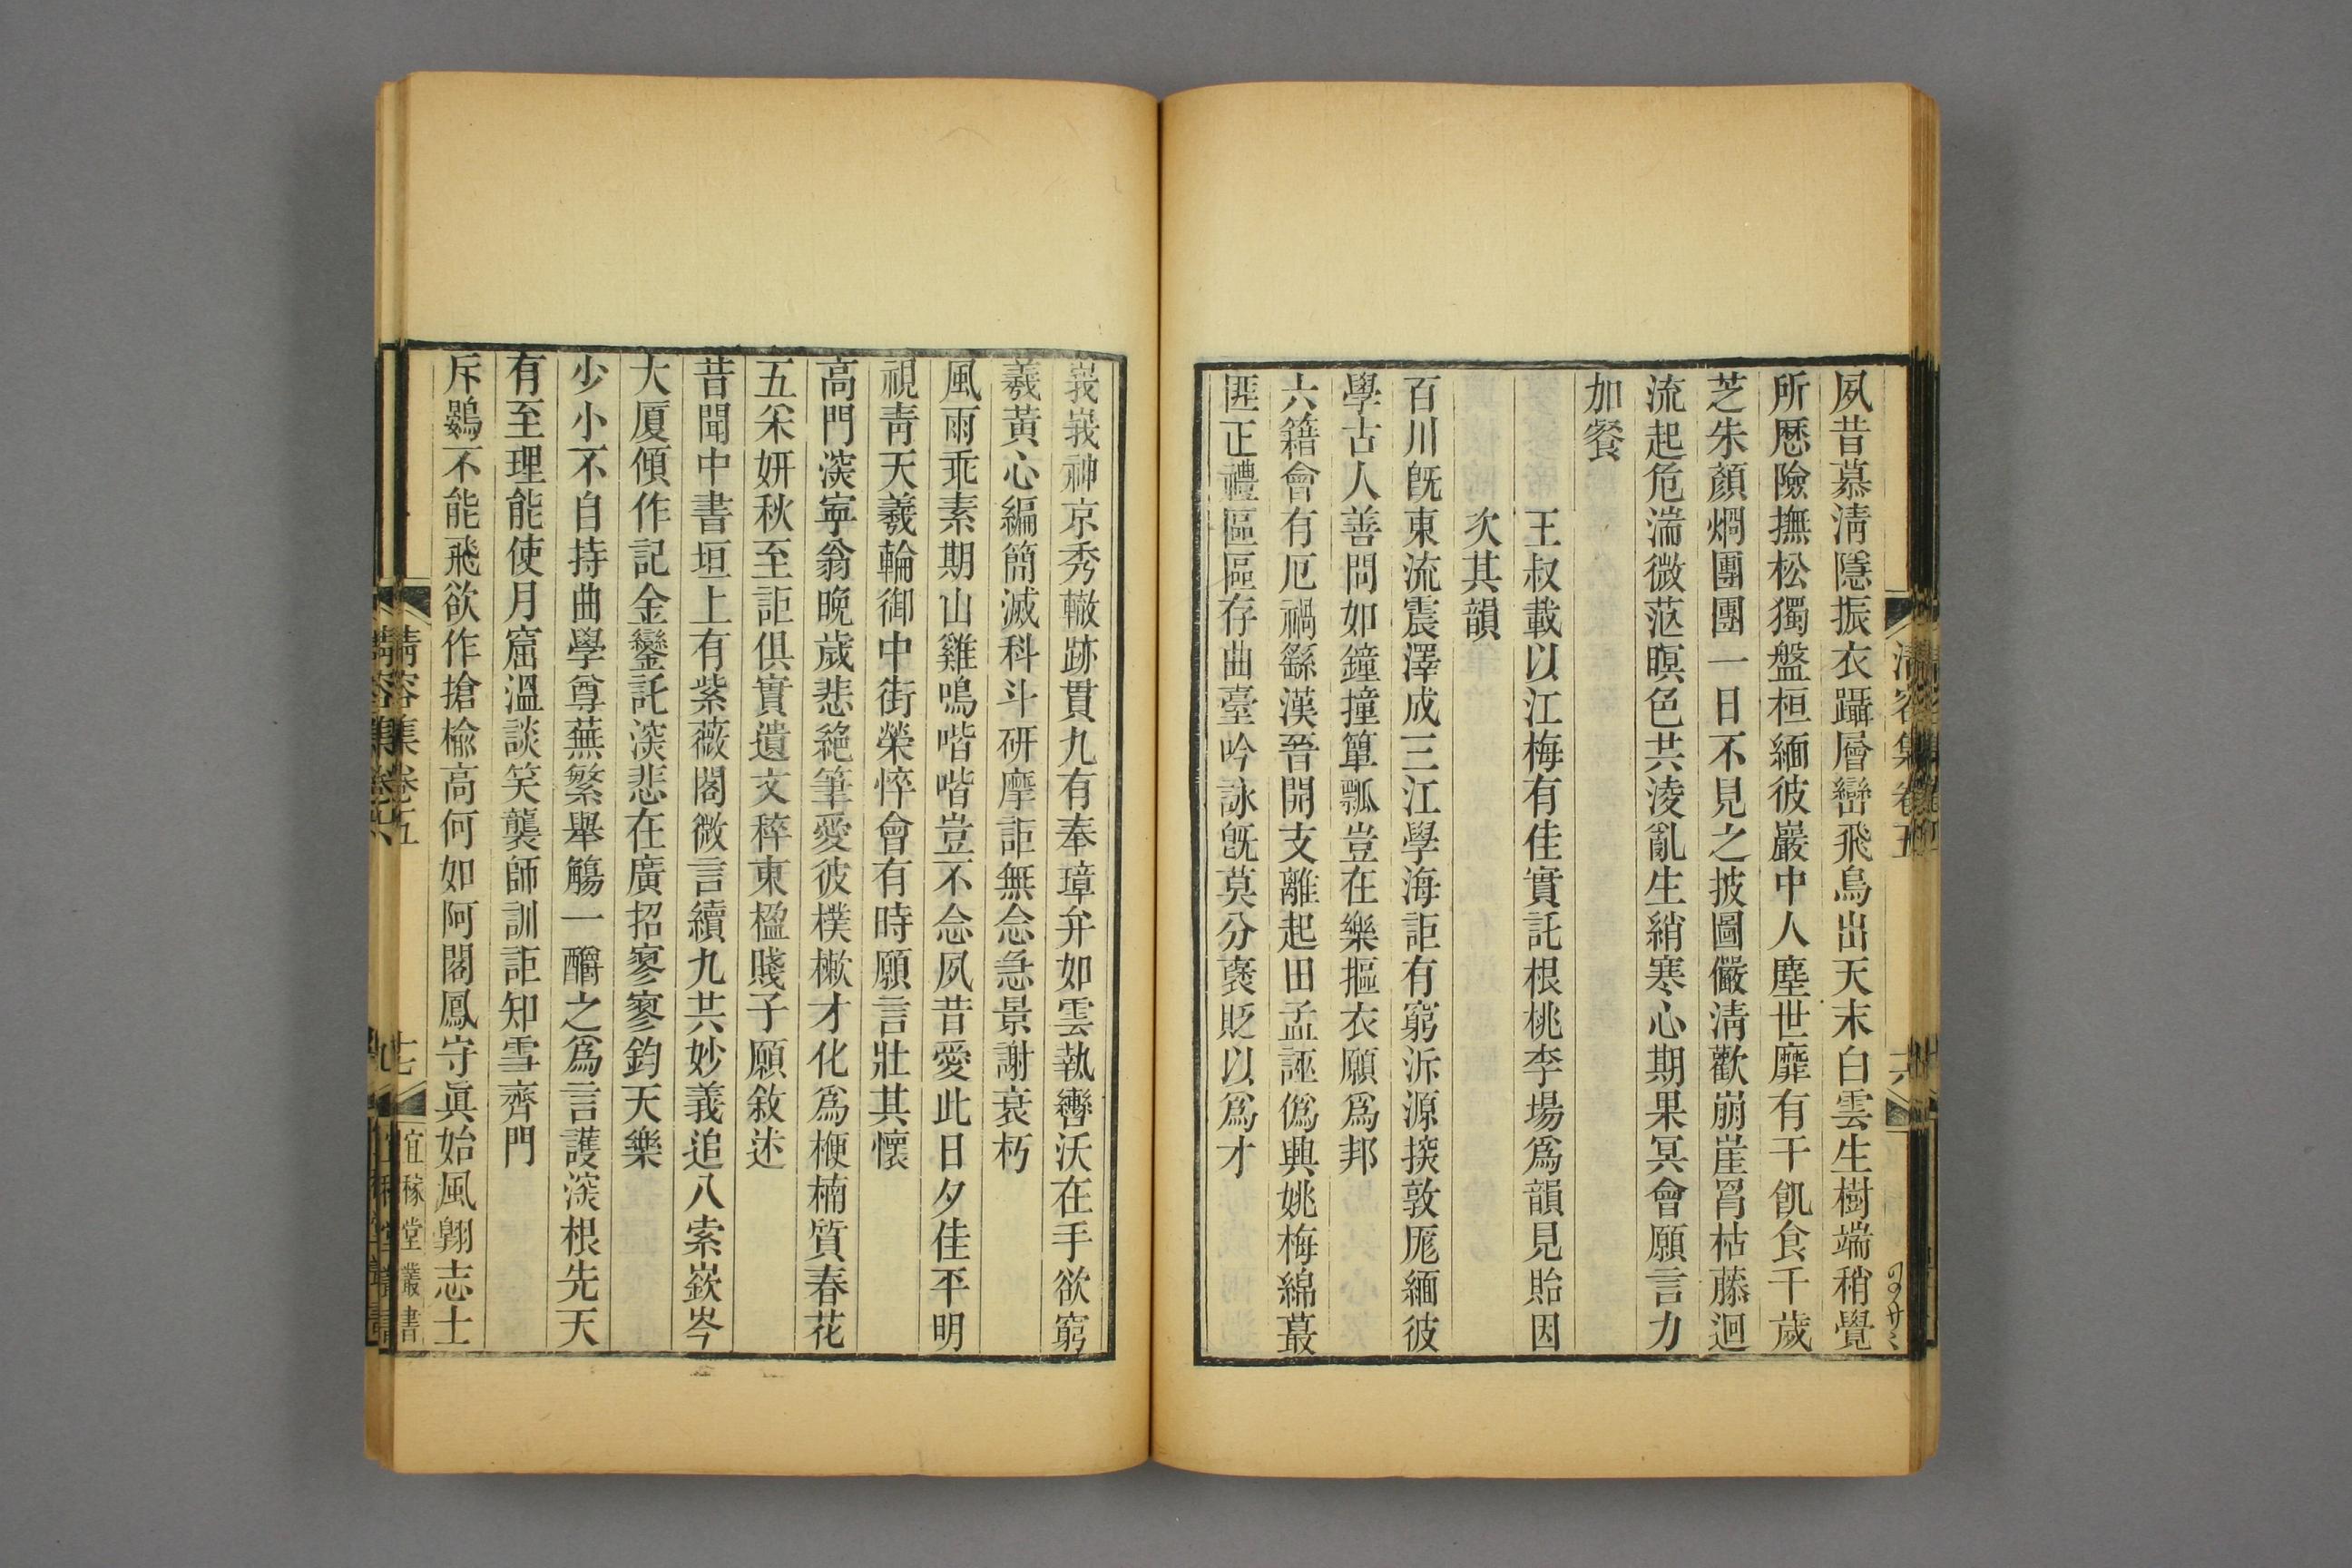 夙昔慕淸隱振衣躡層巒飛鳥出天末白雲生樹端稍覺
所歴險撫松獨盤桓緬彼巖中人塵世靡有干飢食千歲
芝朱顏烱團團一日不見之披圖儼淸歡崩崖罥枯藤迴
流起危湍微茫暝色共淩亂生綃寒心期果冥會願言力
加餐
王叔載以江梅有佳實託根桃李場爲韻見貽因
次其韻
百川旣東流震澤成三江學海詎有窮泝源接敦厖緬彼
學古人善問如鐘撞簞瓢豈在樂摳衣願爲邦
六籍會有厄禍繇漢晉開支離起田孟誣僞興姚梅綿蕞
匪正禮區區存曲臺吟詠旣莫分褒貶以爲才
峩峩神京秀轍跡貫九有奉璋弁如雲執轡沃在手欲窮
羲黃心編簡滅科斗研摩詎無念急景謝衰朽
風雨乖素期山雞鳴喈喈豈不念夙昔愛此日夕佳平明
視靑天羲輪御中街榮悴會有時願言壯其懷
高門深寧翁晚歲悲絶筆愛彼樸樕才化爲楩楠質春花
五釆妍秋至詎俱實遺文稡東楹賤子願敘述
昔聞中書垣上有紫薇閣微言續九共妙義追八索嶔岑
大厦傾作記金鑾託深悲在廣招寥寥鈞天樂
少小不自持曲學尊蕪繁舉觴一釂之爲言護深根先天
有至理能使月窟溫談笑襲師訓詎知雪齊門
斥鷃不能飛欲作搶楡高何如阿閣鳳守眞始風翺志士
淸容集卷五
六
淸容集卷五
七
宜稼堂叢書